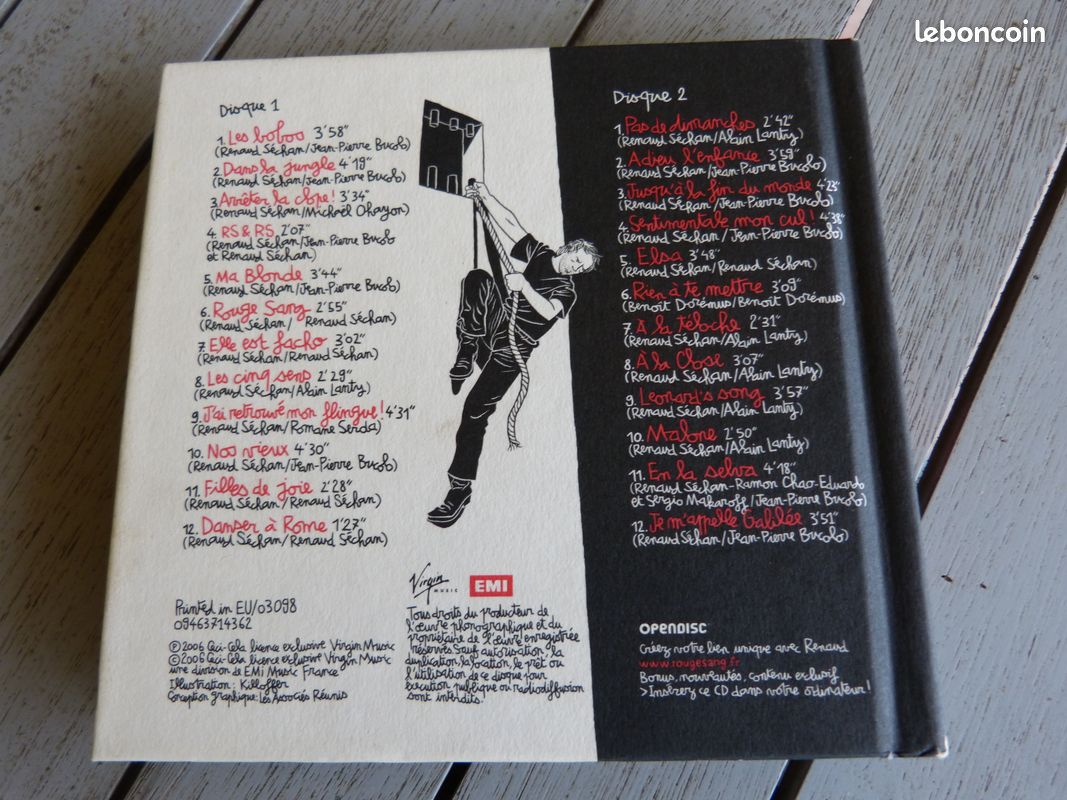 leboncoin
Disque 1
1. Les bobos 3'58"
(Renaud Séchan/Jean-Pierre Bucolo)
2. Dans la jungle 4'19"
(Renaud Séchan/Jean-Pierre Bucolo)
3. Arrêter la clope! 3'34"
(Renaud Séchan/Michaël Ohayon)
4. RS & RS 2'07"
(Renaud Séchan/Jean-Pierre Bucolo
et Renaud Séchan)
5. Ma Blonde 3'44"
(Renaud Séchan/Jean-Pierre Bucolo)
6. Rouge Sang 2'55"
(Renaud Séchan/ Renaud Séchan)
7. Elle est facho 3'02"
(Renaud Séchan/Renaud Séchan)
8. Les cinq sens 2'29"
(Renaud Séchan/Alain Lanty)
9. J'ai retrouvé mon flingue! 4'31"
(Renaud Séchan/Romane Serda)
10. Nos vieux 4'30"
(Renaud Séchan/Jean-Pierre Bucolo)
11. Filles de joie 2'28"
(Renaud Séchan/Renaud Séchan)
12. Danser à Rome 1'27"
(Renaud Séchan/Renaud Séchan)
Printed in EU/03098
09463714362
℗ 2006 Ceci-Cela licence exclusive Virgin Music
© 2006 Ceci-Cela licence exclusive Virgin Music
une division de EMI Music France
Illustration : Killoffer
Conception graphique: Les Associés Réunis
Virgin
MUSIC
EMI
Tous droits du producteur de
l'œuvre phonographique et du
propriétaire de l'œuvre enregistrée
réservés. Sauf autorisation, la
duplication, la location, le prêt ou
l'utilisation de ce disque pour
exécution publique ou radiodiffusion
sont interdits.
Disque 2
1. Pas de dimanches 2'42"
(Renaud Séchan/Alain Lanty)
2. Adieu l'enfance 3'59"
(Renaud Séchan/Jean-Pierre Bucolo)
3. Jusqu'à la fin du monde 4'23"
(Renaud Séchan/Jean-Pierre Bucolo)
4. Sentimentale mon cul! 4'38"
(Renaud Séchan / Jean-Pierre Bucolo)
5. Elsa 3'48"
(Renaud Séchan/ Renaud Séchan)
6. Rien à te mettre 3'09"
(Benoît Dorémus/Benoît Dorémus)
7. À la téloche 2'31"
(Renaud Séchan/Alain Lanty)
8. À la Close 3'07"
(Renaud Séchan/Alain Lanty)
9. Leonard's song 3'57"
(Renaud Séchan/Alain Lanty)
10. Malone 2'50"
(Renaud Séchan/Alain Lanty)
11. En la selva 4'18"
(Renaud Séchan-Ramon Chao-Eduardo
et Sergio Makaroff/Jean-Pierre Bucolo)
12. Je m'appelle Galilée 3'51"
(Renaud Séchan/Jean-Pierre Bucolo)
OPENDISC
Créez votre lien unique avec Renaud
www.rougesang.fr
Bonus, nouveautés, contenu exclusif
>Insérez ce CD dans votre ordinateur!